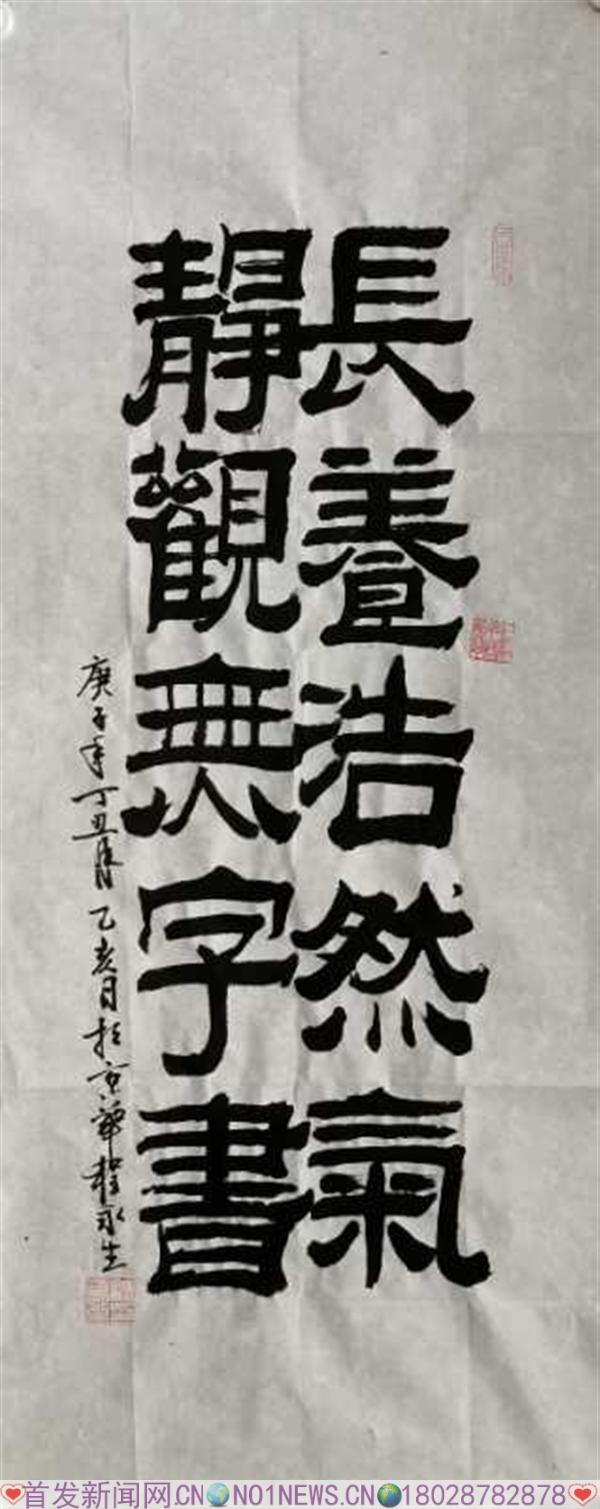 長養浩然氣
靜觀無字書
庚子年丁丑月乙亥日於京華程永生
首发新闻网.CN NO1NEWS.CN 18028782878